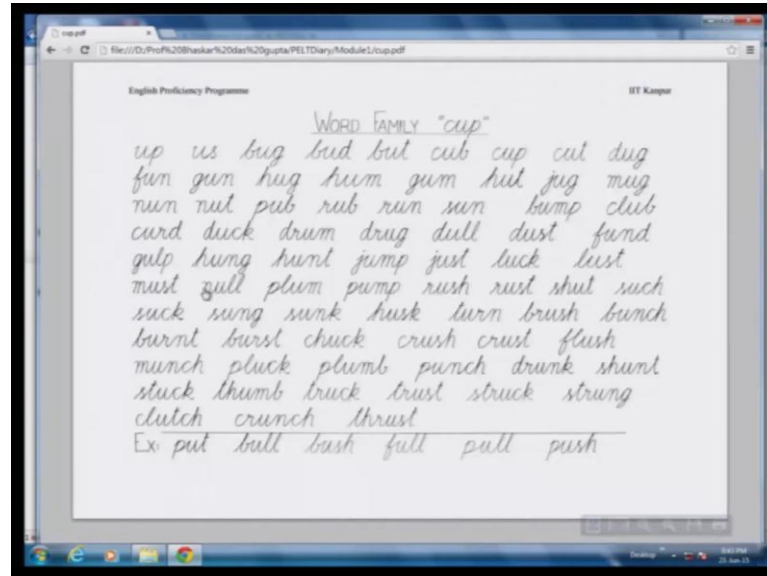 cup.pdf
file:///D:/Prof%20Bhaskar%20das%20gupta/PELTDiary/Module1/cup.pdf
English Proficiency Programme IIT Kanpur
WORD FAMILY "cup"
up us bug bud but cub cup cut dug
fun gun hug hum gum hut jug mug
nun nut pub rub run sun bump club
curd duck drum drug dull dust fund
gulp hung hunt jump just luck lust
must null plum pump rush rust shut such
suck sung sunk husk turn brush bunch
burnt burst chuck crush crust flush
munch pluck plumb punch drunk shunt
stuck thumb truck trust struck strung
clutch crunch thrust
Ex: put bull bush full pull push
Desktop 5:43 PM
23-Jun-15